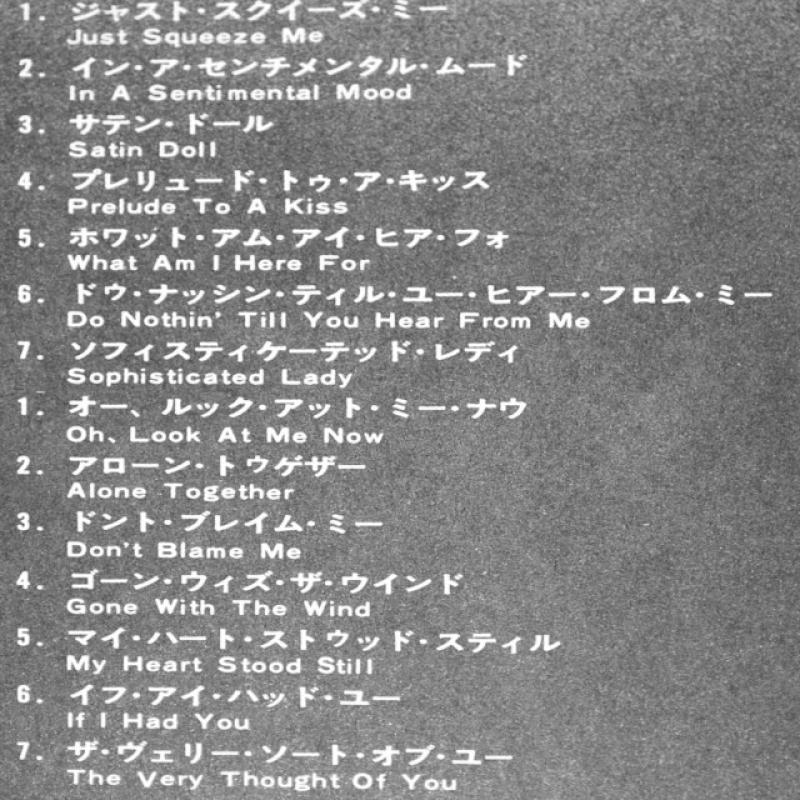 1. ジャスト・スクイーズ・ミー
Just Squeeze Me
2. イン・ア・センチメンタル・ムード
In A Sentimental Mood
3. サテン・ドール
Satin Doll
4. プレリュード・トゥ・ア・キッス
Prelude To A Kiss
5. ホワット・アム・アイ・ヒア・フォ
What Am I Here For
6. ドゥ・ナッシン・ティル・ユー・ヒアー・フロム・ミー
Do Nothin' Till You Hear From Me
7. ソフィスティケーテッド・レディ
Sophisticated Lady
1. オー、ルック・アット・ミー・ナウ
Oh, Look At Me Now
2. アローン・トゥゲザー
Alone Together
3. ドント・ブレイム・ミー
Don't Blame Me
4. ゴーン・ウィズ・ザ・ウインド
Gone With The Wind
5. マイ・ハート・ストゥッド・スティル
My Heart Stood Still
6. イフ・アイ・ハッド・ユー
If I Had You
7. ザ・ヴェリー・ソート・オブ・ユー
The Very Thought Of You